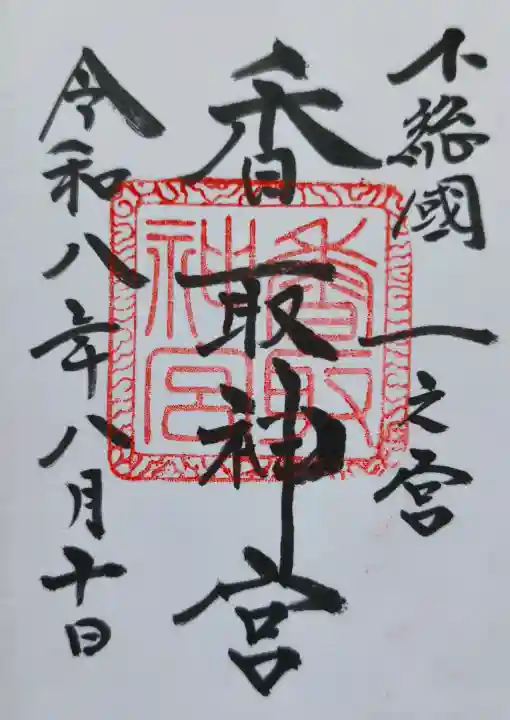 下総國一之宮
香取神宮
令和八年八月十日
香取神宮